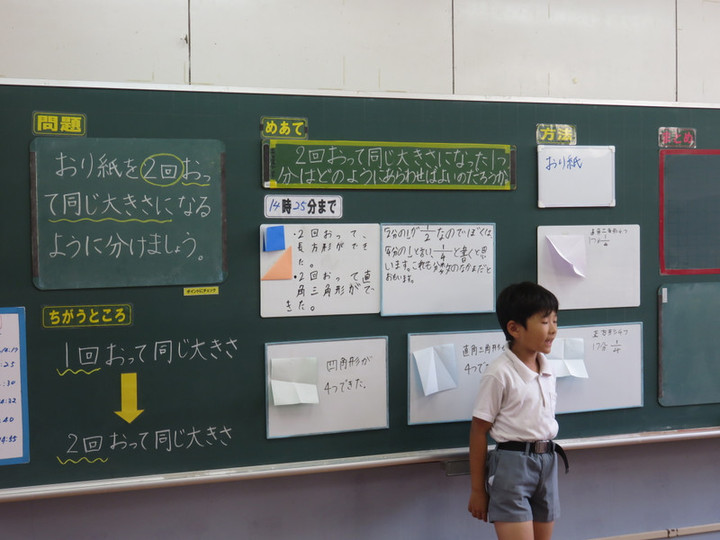 問題
おり紙を2回おっ
て同じ大きさになる
ように分けましょう。
ちがうところ
1回おって同じ大きさ
2回おって同じ大きさ
めあて
2回おって同じ大きさになった1つ
分はどのようにあらわせばよいのだろうか。
14時25分まで
・2回おって、
長方形ができ
た。
・2回おって直
角三角形がで
きた。
2分の1が1/2なのでぼくは
4分の1と言い、1/4と書くと思
います。これも分数のなかまだと
おもいます。
四角形が
4つできた。
直角三角形が
4つで
方法
おり紙
まとめ
:25
:30
:40